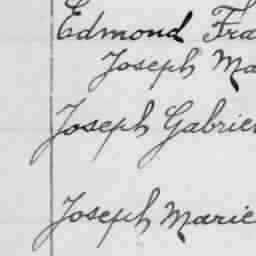 Edmond Fra
Joseph Ma
Joseph Gabriel
Joseph Marie